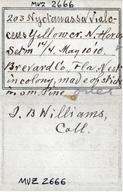 MVZ 2666
203 Nyctanassa Viola-
ceus Yellow cr. N. Heron
Set n 1/4. May 10 '10.
Brevard Co. Fla. Nest
in colony, made of stick
in Pine
J. B Williams,
Coll.
MVZ 2666